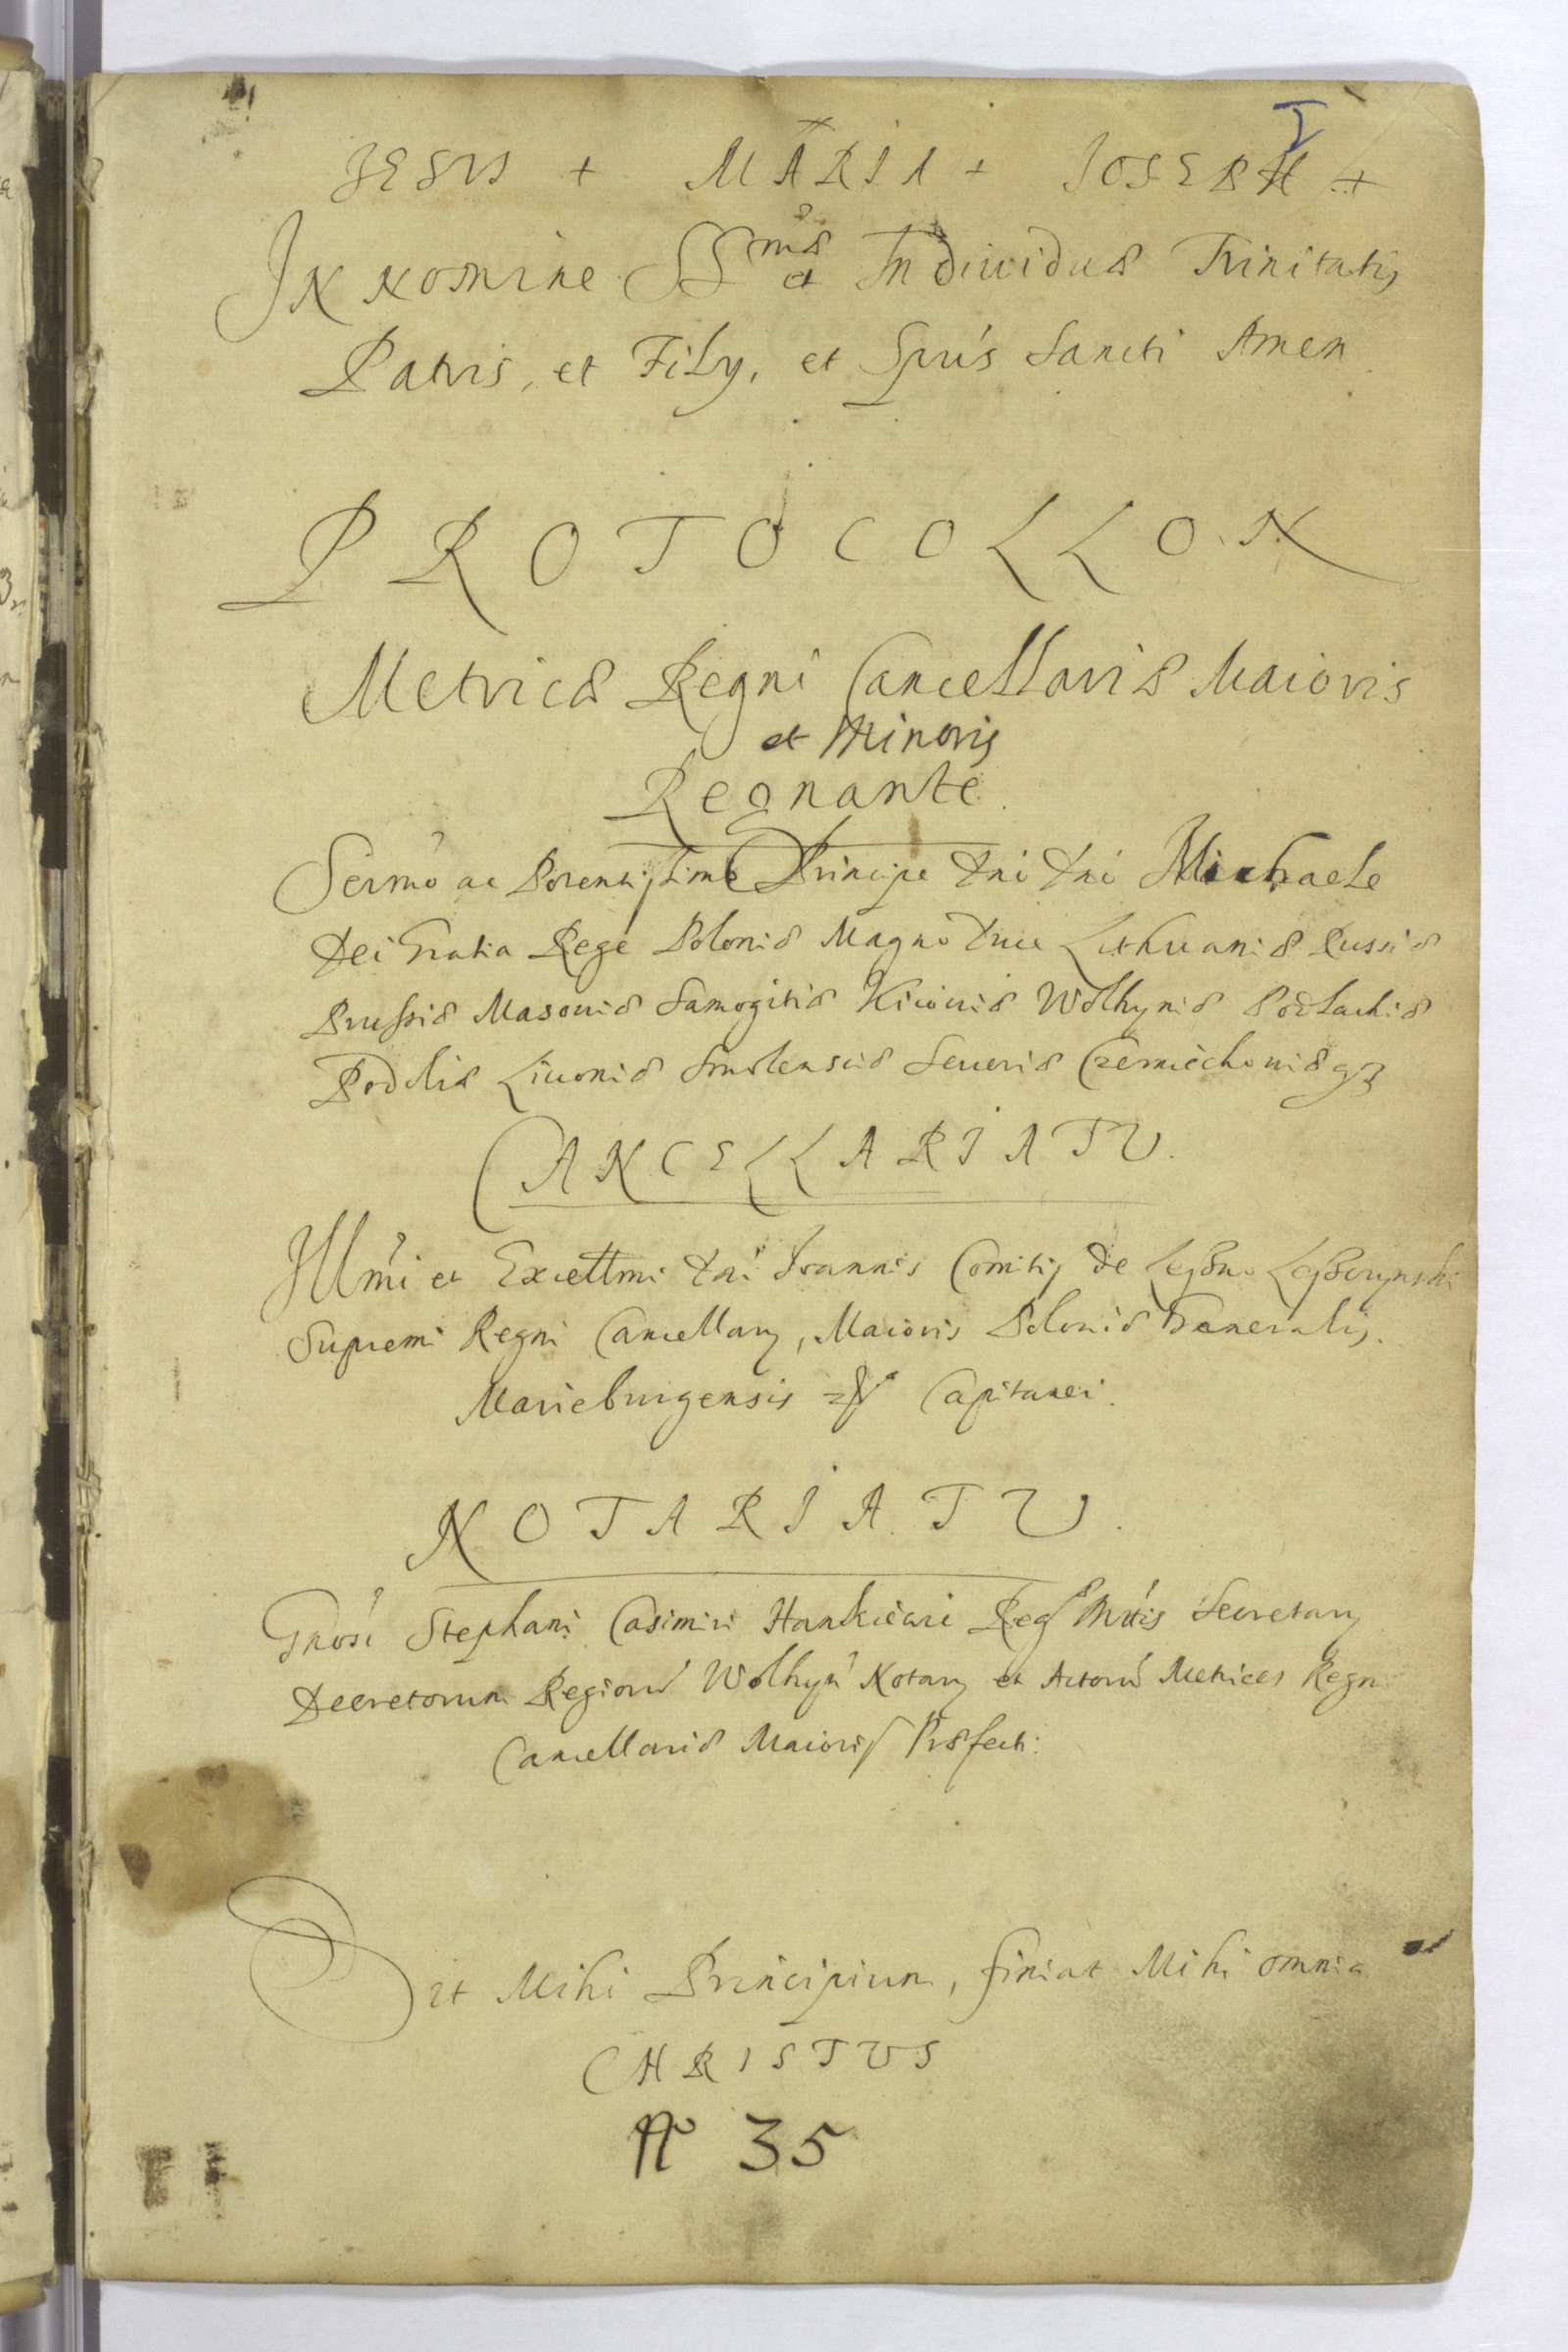 I
JESUS + MARIA + JOSEPH +
IN NOMINE SSmæ et Individuæ Trinitatis
Patris, et Filÿ, et Sprús Sancti Amen
PROTOCOLLON
Metricæ Regni Cancellariæ Maioris
et Minoris
Regnante
Sermo ac Potentissimo Principe Dni Dni Michaele
Dei Gratia Rege Poloniæ Magno Duce Lithuaniæ Russiæ
Prussiæ Masoviæ Samogitiæ Kiioviæ Wolhyniæ Podlachiæ
Podoliæ Livoniæ Smolensciæ Severiæ Czerniechoviæq3
CANCELLARIATU.
Illmi et Excellmi Dni Joannis Comitis de Leszno Leszczynski
Supremi Regni Cancellarÿ, Maioris Poloniæ Generalis.
Marieburgensis Capitanei.
NOTARIATU.
Gnosi Stephani Casimiri Hankiewi Reg Mttis Secretarÿ
Decretorum Regioru Wolhyn Notarÿ et Actoru Metrices Regni
Cancellariæ Maioris Præfecti.
Dit Mihi Principium, finiat Mihi omnia
CHRISTUS
No 35